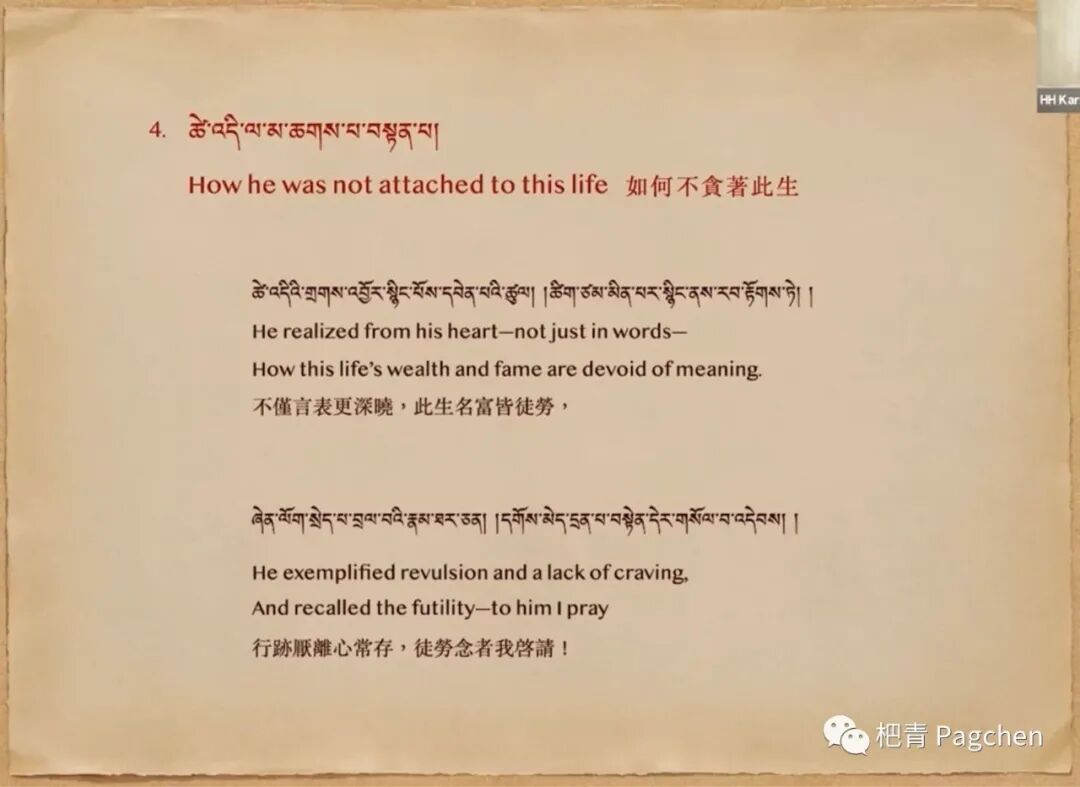 4. ཚེ་འདི་ལ་མ་ཆགས་པ་བསྟན་པ།
How he was not attached to this life 如何不貪著此生
ཚེ་འདིའི་གྲགས་འབྱོར་སྙིང་པོས་དབེན་པའི་ཚུལ། །ཚིག་ཙམ་མིན་པར་སྙིང་ནས་རབ་རྟོགས་ཏེ། །
He realized from his heart—not just in words—
How this life's wealth and fame are devoid of meaning.
不僅言表更深曉，此生名富皆徒勞，
ཞེན་ལོག་སྲེད་པ་བྲལ་བའི་རྣམ་ཐར་ཅན། །དགོས་མེད་དྲན་པ་བསྟེན་དེར་གསོལ་བ་འདེབས། །
He exemplified revulsion and a lack of craving,
And recalled the futility—to him I pray
行跡厭離心常存，徒勞念者我啓請！
HH Kar
杷青 Pagchen